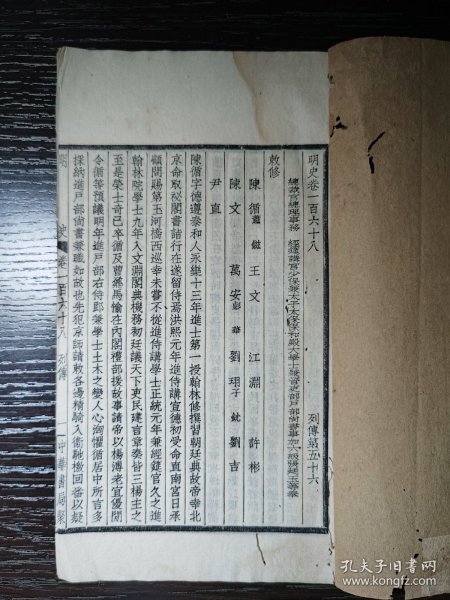 明史卷一百六十八
列傳第五十六
總裁官總理事務 經筵講官少保兼太子太保保和殿大學士兼管吏部戶部尚書事加六級張廷玉等奉
敕修
陳循 蕭鎡 王文 江淵 許彬
陳文 萬安 彭華 劉珝 子鈗 劉吉
尹直
陳循字德遵泰和人永樂十三年進士第一授翰林修撰習朝廷典故帝幸北
京命取祕閣書詣行在遂留侍焉洪熙元年進侍講宣德初受命直南宮日承
顧問賜第玉河橋西巡幸未嘗不從進侍講學士正統元年兼經筵官久之進
翰林院學士九年入文淵閣典機務初廷議天下吏民建言章奏皆三楊主之
至是榮士奇已卒循及曹鼐馬愉在內閣禮部援故事請帝以楊溥老宜優閒
令循等預議明年進戶部右侍郎兼學士土木之變人心洶懼循居中所言多
採納進戶部尚書兼職如故也先犯京師請敕各邊精騎入衞馳檄回番以疑
明 史 卷一百六十八 列傳 一 中華書局聚
孔夫子旧书网
www.kongfz.com